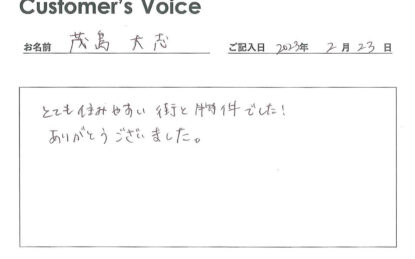 Customer's Voice
お名前 茂島 大志 ご記入日 2023年 2月 23日
とても住みやすい街と物件でした!
ありがとうございました。